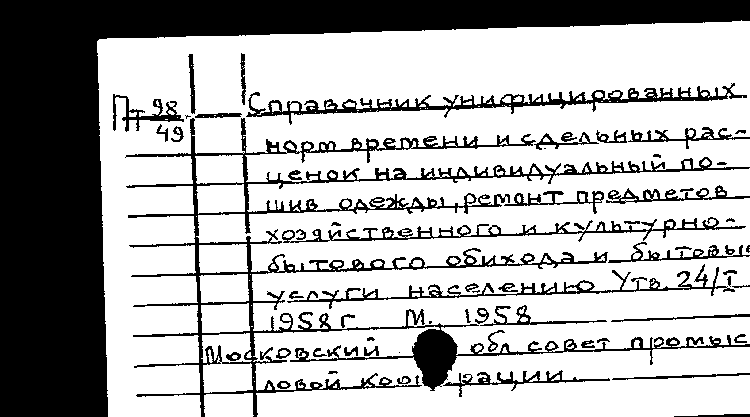 Пт 98/49 Справочник унифицированных
норм времени и сдельных рас-
ценок на индивидуальный по-
шив одежды, ремонт предметов
хозяйственного и культурно-
бытового обихода и бытовые
услуги населению Утв. 24/I
1958 г. М., 1958
Московский обл совет промыс
ловой кооперации.